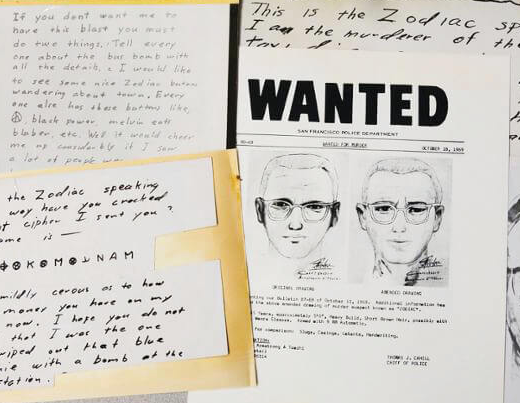 If you dont want me to
have this blast you must
do two things. Tell every
one about the bus bomb with
all the details. I would like
to see some nice Zodiac butons
wandering about town. Every
one else has these buttons like,
black power, melvin eats
bluber, etc. Well it would cheer
me up considerably if I saw
a lot of people
This is the Zodiac
I am the murderer of the
the Zodiac speaking
way have you cracked
cipher I sent you?
ame is —
KOM NAM
mildly cerous as to how
money you have on my
now. I hope you do not
that I was the one
wiped out that blue
nie with a bomb at the
station.
WANTED
SAN FRANCISCO POLICE DEPARTMENT
WANTED FOR MURDER OCTOBER 18, 1969
ORIGINAL DRAWING AMENDED DRAWING
our Bulletin of October 13, 1969. Additional information has
the above amended drawing of murder suspect known as "ZODIAC".
Years, approximately Heavy Build, Short Brown Hair, possibly with
Glasses. Armed with 9 MM Automatic.
for comparison: Slugs, Casings, Latents, Handwriting.
Armstrong & Toschi
THOMAS J. CAHILL
CHIEF OF POLICE